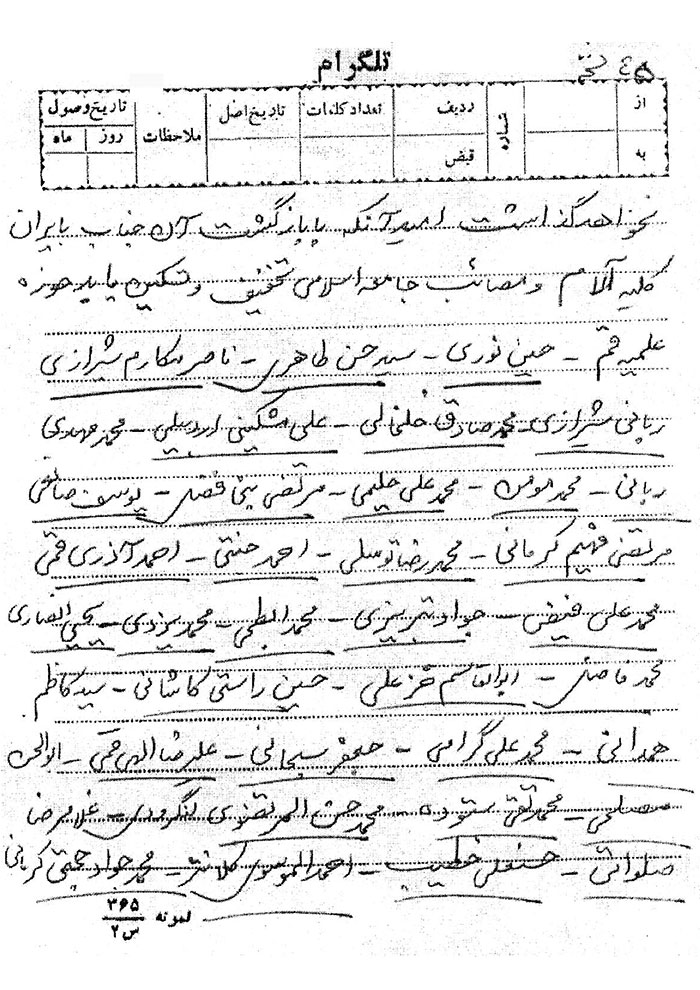 تلگرام
از
به
شماره
ردیف
قبض
تعداد کلمات
تاریخ اصل
ملاحظات
تاریخ وصول
روز
ماه
نخواهد گذاشت امید آنکه با بازگشت آن جناب بایران
کلیه آلام و مصائب جامعه اسلامی تخفیف و تسکین یابد حوزه
علمیه قم - حسین نوری - سید حسن طاهری - ناصر مکارم شیرازی
ربانی شیرازی - محمد صادق خلخالی - علی مشکینی اردبیلی - محمد مهدی
ربانی - محمد مومن - محمد علی حلیمی - مرتضی بنی فضل - یوسف صانعی
مرتضی فهیم کرمانی - محمد رضا توسلی - احمد جنتی - احمد آذری قمی
محمد علی فیض - جواد تبریزی - محمد ابطحی - محمد یزدی - یحیی انصاری
محمد فاضل - ابوالقاسم خزعلی - حسین راستی کاشانی - سید کاظم
همدانی - محمد علی گرامی - جعفر سبحانی - علیرضا الهی قمی - ابوالحسن
مصلحی - محمد تقی ستوده - محمد حسن المرتضوی لنگرودی - غلامرضا
صلواتی - حسنعلی خطیب - احمد الموسوی کلانتر - محمد جواد حجتی کرمانی
نمونه ۳۶۵
س۲